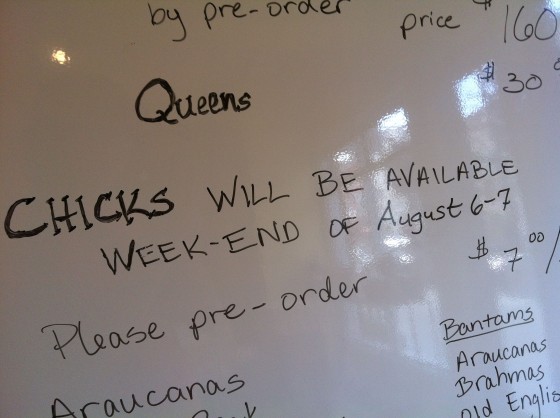 by pre-order price $160
Queens $30
CHICKS WILL BE AVAILABLE
WEEK-END OF August 6-7
$7.00/
Please pre-order
Bantams
Araucanas
Brahmas
Old Englis
Araucanas